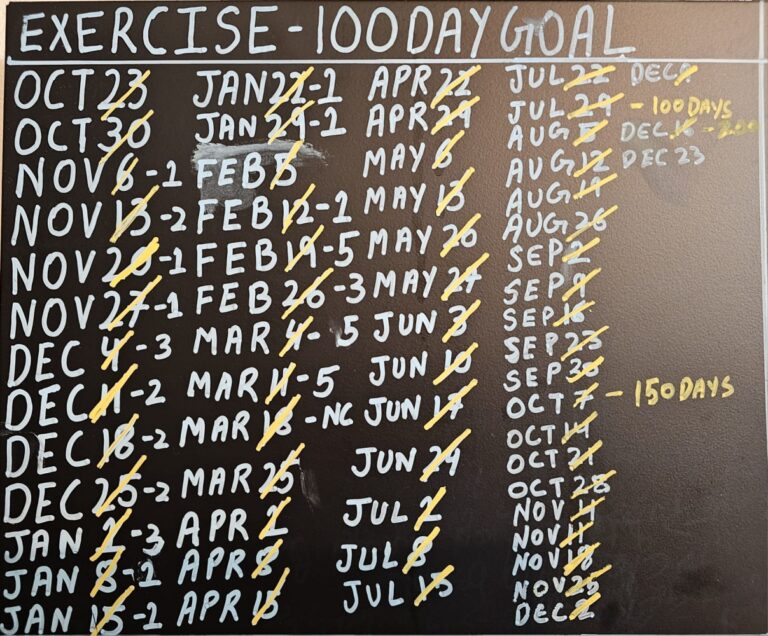 EXERCISE - 100 DAY GOAL
OCT 23
OCT 30
NOV 6-1
NOV 13-2
NOV 20-1
NOV 27-1
DEC 4-3
DEC 11-2
DEC 18-2
DEC 25-2
JAN 1-3
JAN 8-1
JAN 15-1
JAN 22-1
JAN 29-1
FEB 5
FEB 12-1
FEB 19-5
FEB 26-3
MAR 4-5
MAR 11-5
MAR 18-NC
MAR 25
APR 1
APR 8
APR 15
APR 22
APR 29
MAY 6
MAY 13
MAY 20
MAY 27
JUN 3
JUN 10
JUN 17
JUN 24
JUL 1
JUL 8
JUL 15
JUL 22
JUL 29 - 100 DAYS
AUG 5
AUG 12
AUG 19
AUG 26
SEP 2
SEP 9
SEP 16
SEP 23
SEP 30
OCT 7 - 150 DAYS
OCT 14
OCT 21
OCT 28
NOV 4
NOV 11
NOV 18
NOV 25
DEC 2
DEC 9
DEC 16 - 200
DEC 23